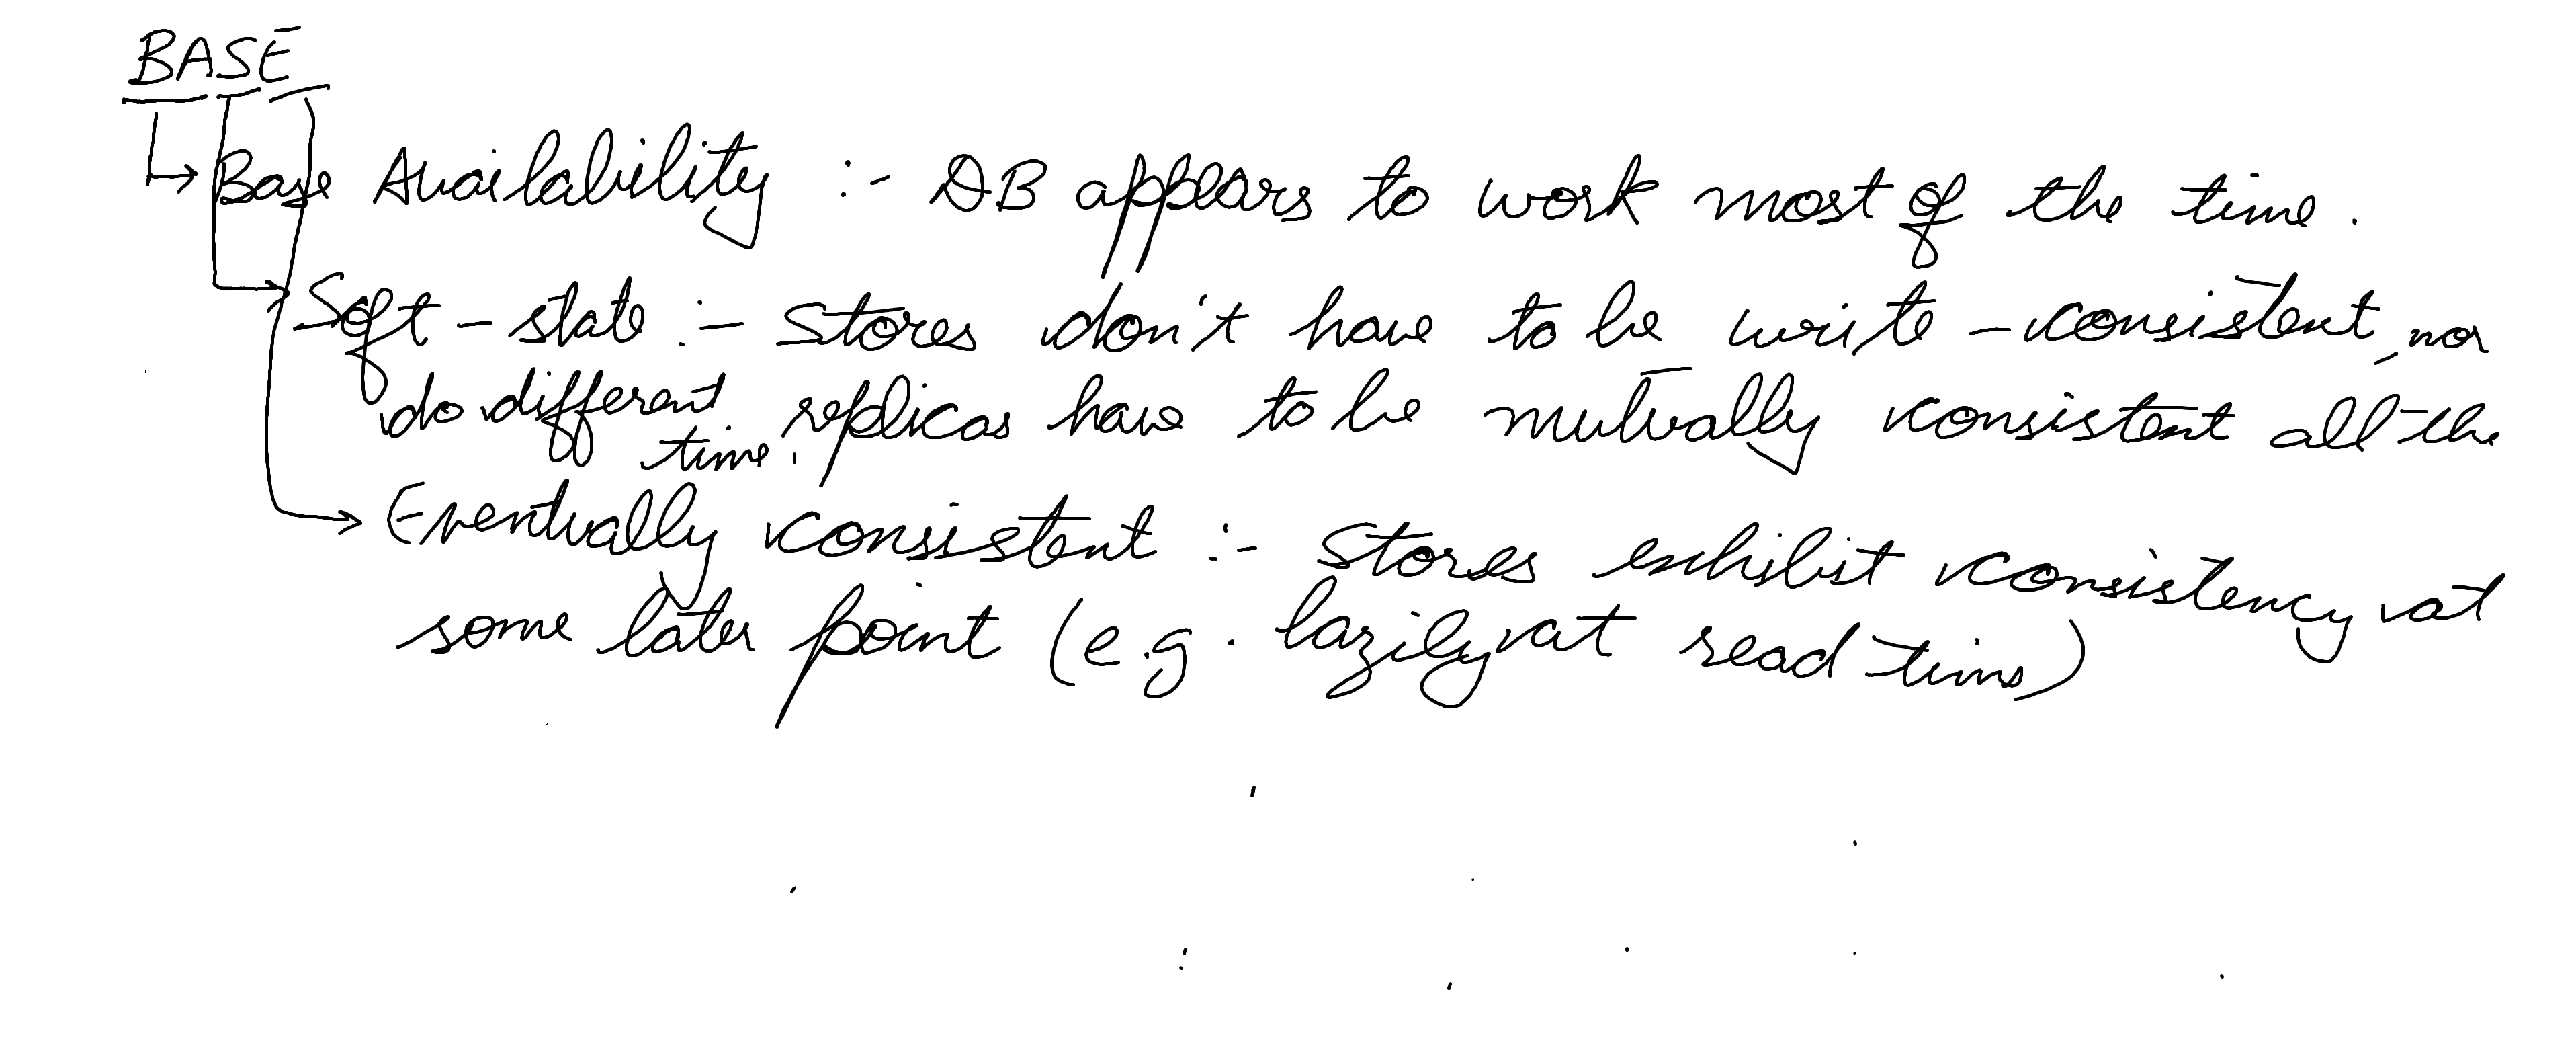 BASE
Base Availability :- DB appears to work most of the time.
Soft-state :- Stores don't have to be write-consistent, nor
do different replicas have to be mutually consistent all the
time.
Eventually consistent :- Stores exhibit consistency at
some later point (e.g. lazily at read time)